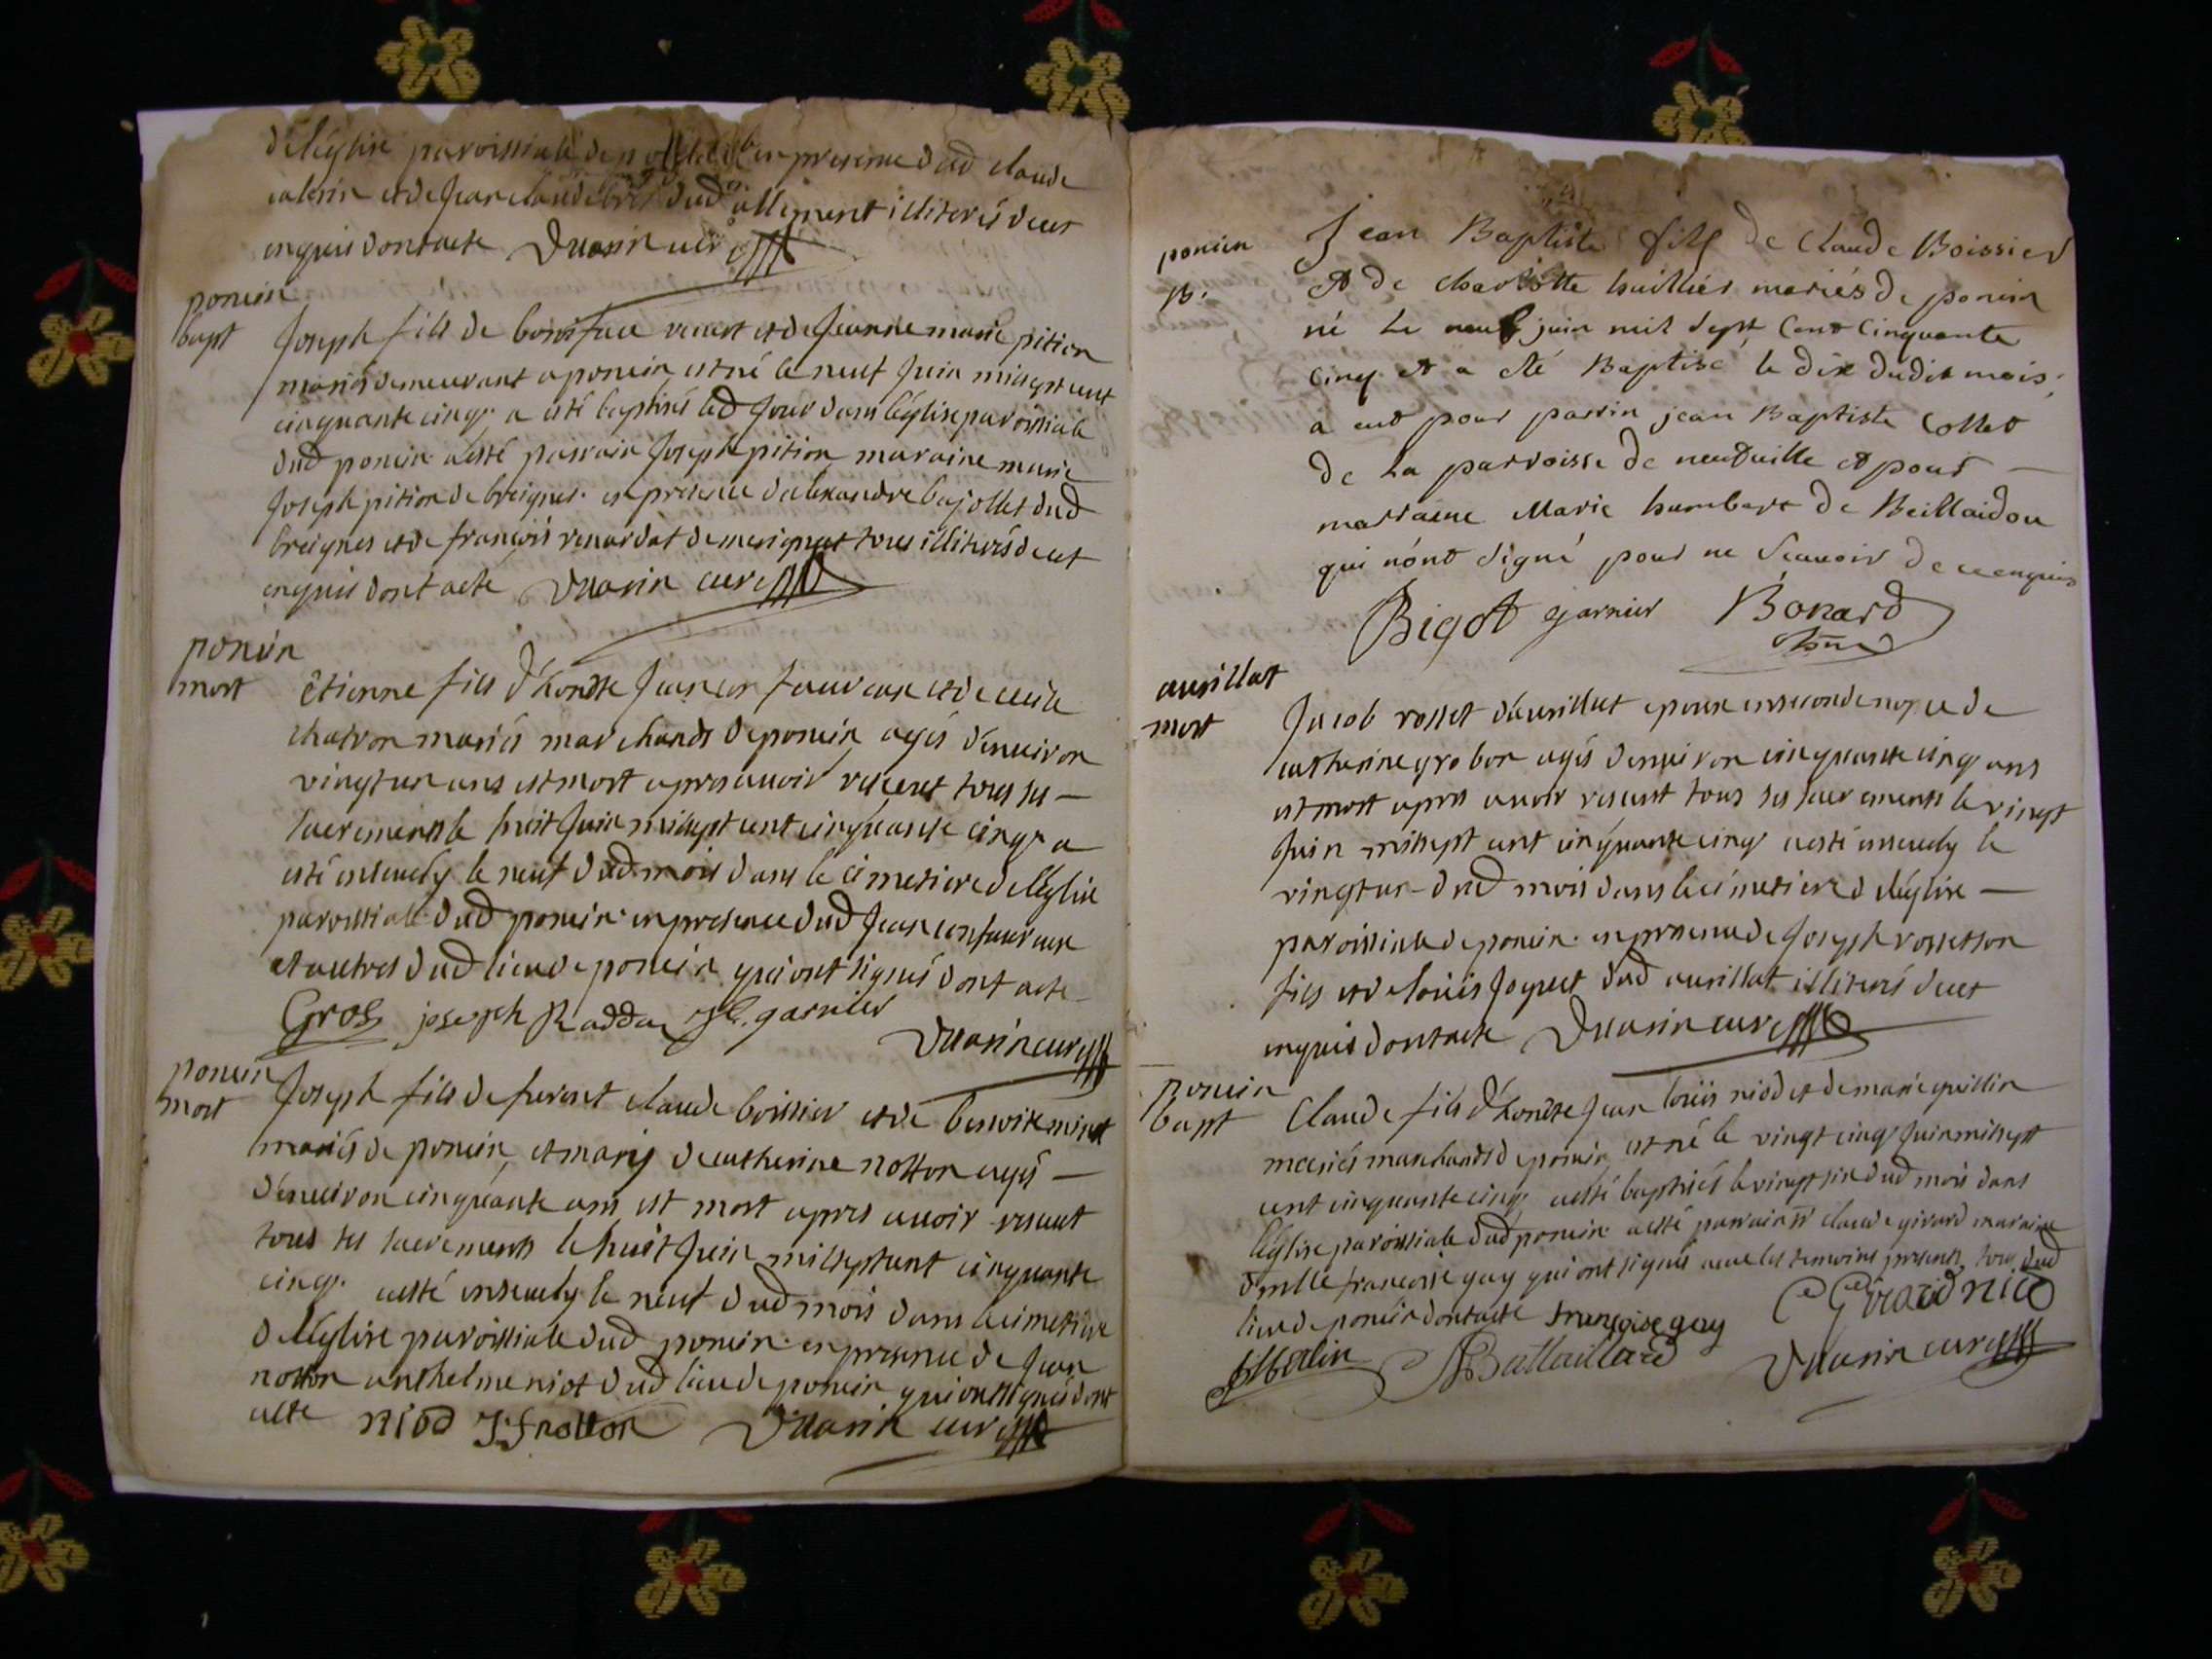 de léglise paroissiale de en presence dud claude
et de jean claude dud allement illiterés deux
enquis dont acte Duarin curé
poncin
bapt
Joseph fils de boniface et de Jeanne marie pition
mariés demeurant a poncin, est né le neuf Juin mil sept cent
cinquante cinq. a esté baptisés led Jour dans léglise paroissiale
dud poncin a esté parrain Joseph pition, maraine marie
Joseph pition de breignes. en presence dalexandre bajollet dud
breignes et de françois renardat de merignat tous illiterés deux
enquis dont acte Duarin curé
poncin
mort
êtienne fils d'honète Jean et de cecile
chatron mariés marchands de poncin, agés d'enuiron
vingt un ans est mort apres auoir receut tous ses —
sacrements le huit Juin mil sept cent cinquante cinq. a
esté enseuely le neuf dud mois dans le cimetiere de léglise
paroissiale dud poncin. en presence dud Jean
et autres dud lieu de poncin qui ont signés dont acte
Gros joseph Raddaz garnier
Duarin curé
poncin
mort
Joseph fils de furent claude boissier et de benoite
mariés de poncin, et mary de catherine notton agés —
d'enuiron cinquante ans est mort apres auoir receut
tous ses sacrements le huit Juin mil sept cent cinquante
cinq. a esté enseuely le neuf dud mois dans le cimetiere
de léglise paroissiale dud poncin. en presence de Jean
notton anthelme niot dud lieu de poncin qui ont signés dont
acte niod J. f notton Duarin curé
poncin
B.
Jean Baptiste fils de Claude Boissier
et de charlotte huillier mariés de poncin
né Le neuf juin mil sept Cent Cinquante
Cinq et a été Baptisé le dix dudit mois,
a eut pour parrin jean Baptiste Collet
de La parroisse de neuuille et pour —
marraine Marie humbert de Beillaidou
qui n'ont signé pour ne scauoir de ce enquis
Bigot garnier Bonard
mort
Jacob rosset epoux en seconde nopce de
catherine grobon agés denuiron cinquante cinq ans
est mort apres auoir receut tous ses sacrements le vingt
Juin mil sept cent cinquante cinq a esté enseuely le
vingt un dud mois dans le cimetiere de léglise —
paroissiale de poncin. en presence de Joseph rosset son
fils et de loüis Joquet dud illiterés deux
enquis dont acte Duarin curé
poncin
bapt
Claude fils d'honète Jean loüis niod et de marie guillin
mariés marchands de poncin, est né le vingt cinq Juin mil sept
cent cinquante cinq, a esté baptisés le vingt six dud mois dans
léglise paroissiale dud poncin. a esté parrain sr claude girard maraine
dmlle francoise gay qui ont signés auec les temoins presents, tous dud
lieu de poncin dont acte françoise gay C Girard niod
Battaillard Duarin curé